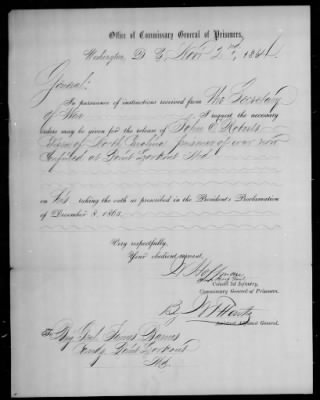 Office of Commissary General of Prisoners,
Washington, D. C. Nov 2nd, 1864.
General:
In pursuance of instructions received from The Secretary
of War I request the necessary
orders may be given for the release of John C. Roberts
of North Carolina prisoner of war now
confined at Point Lookout Md.
on his taking the oath as prescribed in the President's Proclamation
of December 8, 1863.
Very respectfully,
Your obedient servant,
W Hoffman
Colonel 3d Infantry,
Commissary General of Prisoners.
By
Assistant Adjutant General.
To Brig Genl James Barnes
Comdg Point Lookout
Md.